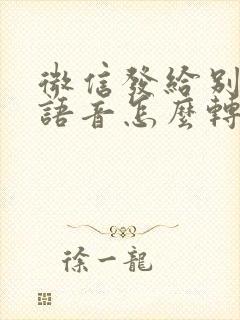 微信發給別
語音怎麼轉
徐一龍